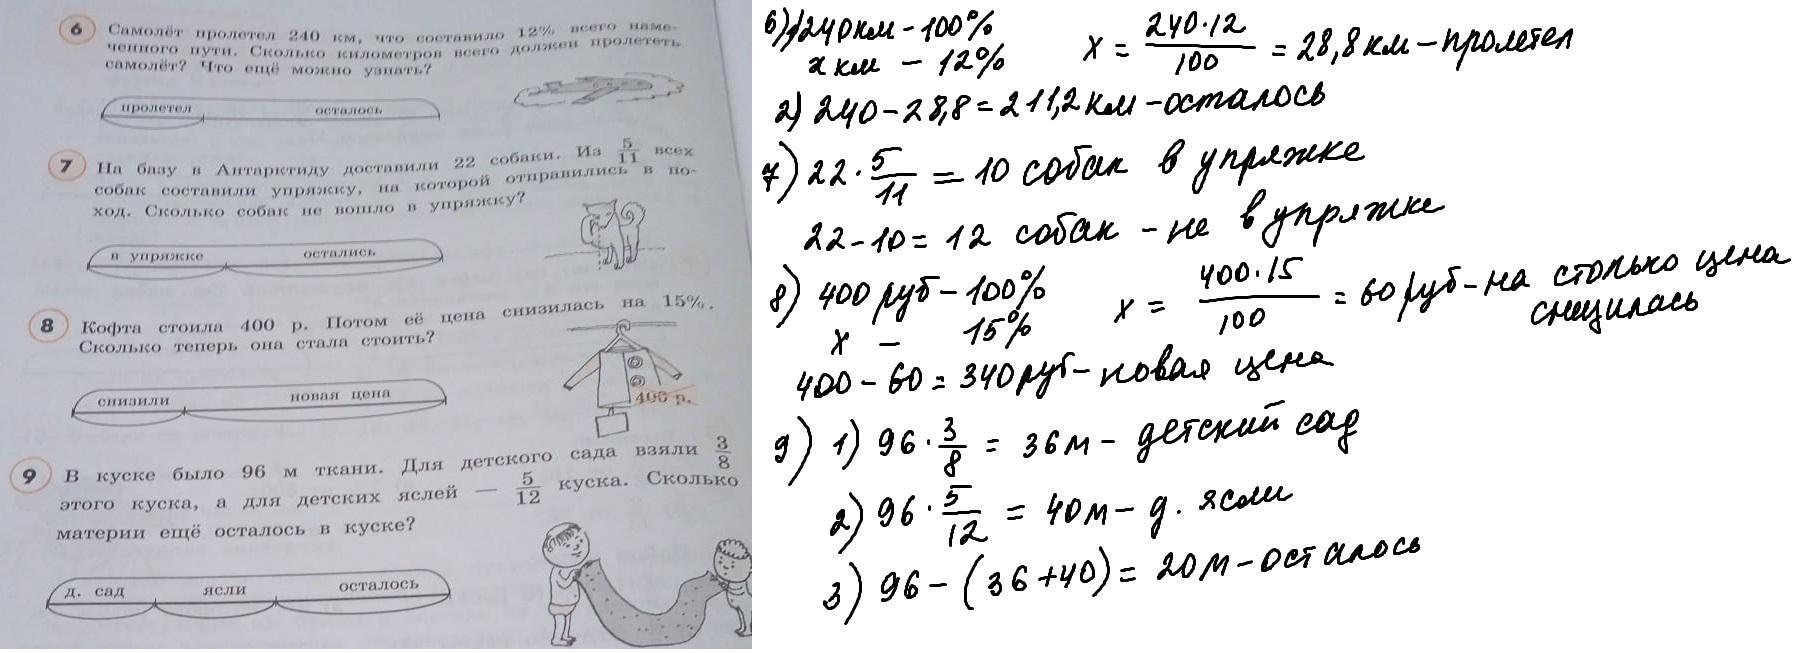 6 Самолёт пролетел 240 км, что составило 12% всего наме-
ченного пути. Сколько километров всего должен пролететь
самолёт? Что ещё можно узнать?
пролетел осталось
7 На базу в Антарктиду доставили 22 собаки. Из 5/11 всех
собак составили упряжку, на которой отправились в по-
ход. Сколько собак не вошло в упряжку?
в упряжке остались
8 Кофта стоила 400 р. Потом её цена снизилась на 15%.
Сколько теперь она стала стоить?
400 р.
снизили новая цена
9 В куске было 96 м ткани. Для детского сада взяли 3/8
этого куска, а для детских яслей — 5/12 куска. Сколько
материи ещё осталось в куске?
д. сад ясли осталось
6) 1) 240 км - 100%
x км - 12%
x = 240·12/100 = 28,8 км - пролетел
2) 240 - 28,8 = 211,2 км - осталось
7) 22 · 5/11 = 10 собак в упряжке
22 - 10 = 12 собак - не в упряжке
8) 400 руб - 100%
x - 15%
x = 400·15/100 = 60 руб - на столько цена
снизилась
400 - 60 = 340 руб - новая цена
9) 1) 96 · 3/8 = 36 м - детский сад
2) 96 · 5/12 = 40 м - д. ясли
3) 96 - (36 + 40) = 20 м - осталось